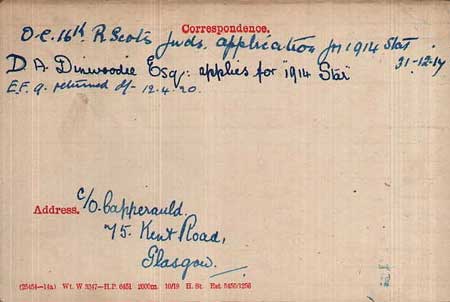 Correspondence.
O.C. 16th R Scots fwds. application for 1914 Star
31-12-17
D. A. Dinwoodie Esq: applies for "1914 Star"
E.F.9. returned d/- 12.4.20.
Address. c/o. Capperauld.
75. Kent Road,
Glasgow.
(25454—14a) Wt. W 3347—H.P. 6451 2000m. 10/19 H. St. Est 5450/1256